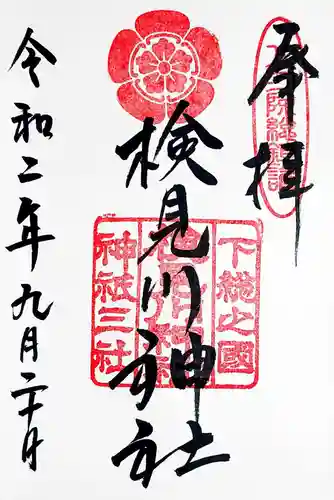 奉拝
検見川神社
下総之國
神祇三社
令和二年九月二十日